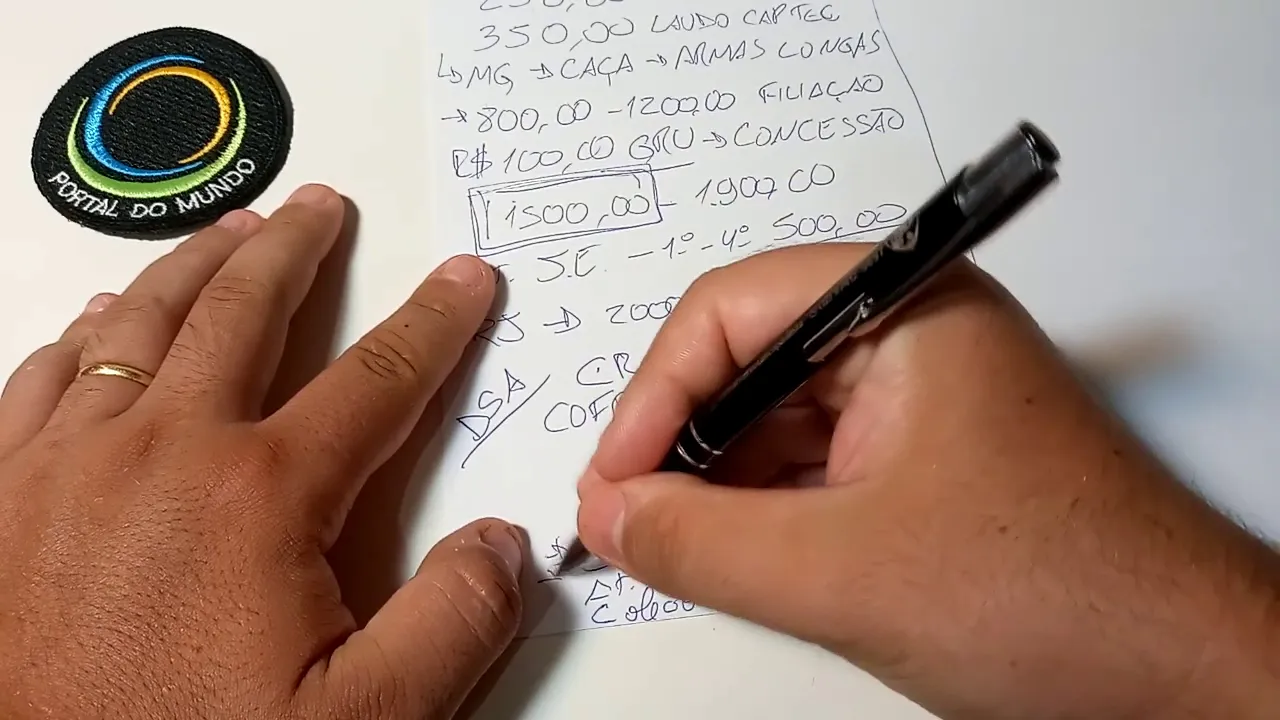 PORTAL DO MUNDO
350,00 LAUDO CAP TEC
↳ MG → CAÇA → ARMAS LONGAS
→ 800,00 - 1200,00 FILIAÇÃO
R$ 100,00 GRU → CONCESSÃO
1500,00 - 1.900 00
S.E. - 1º - 4º 500,00
RJ → 2000
DSA
CR